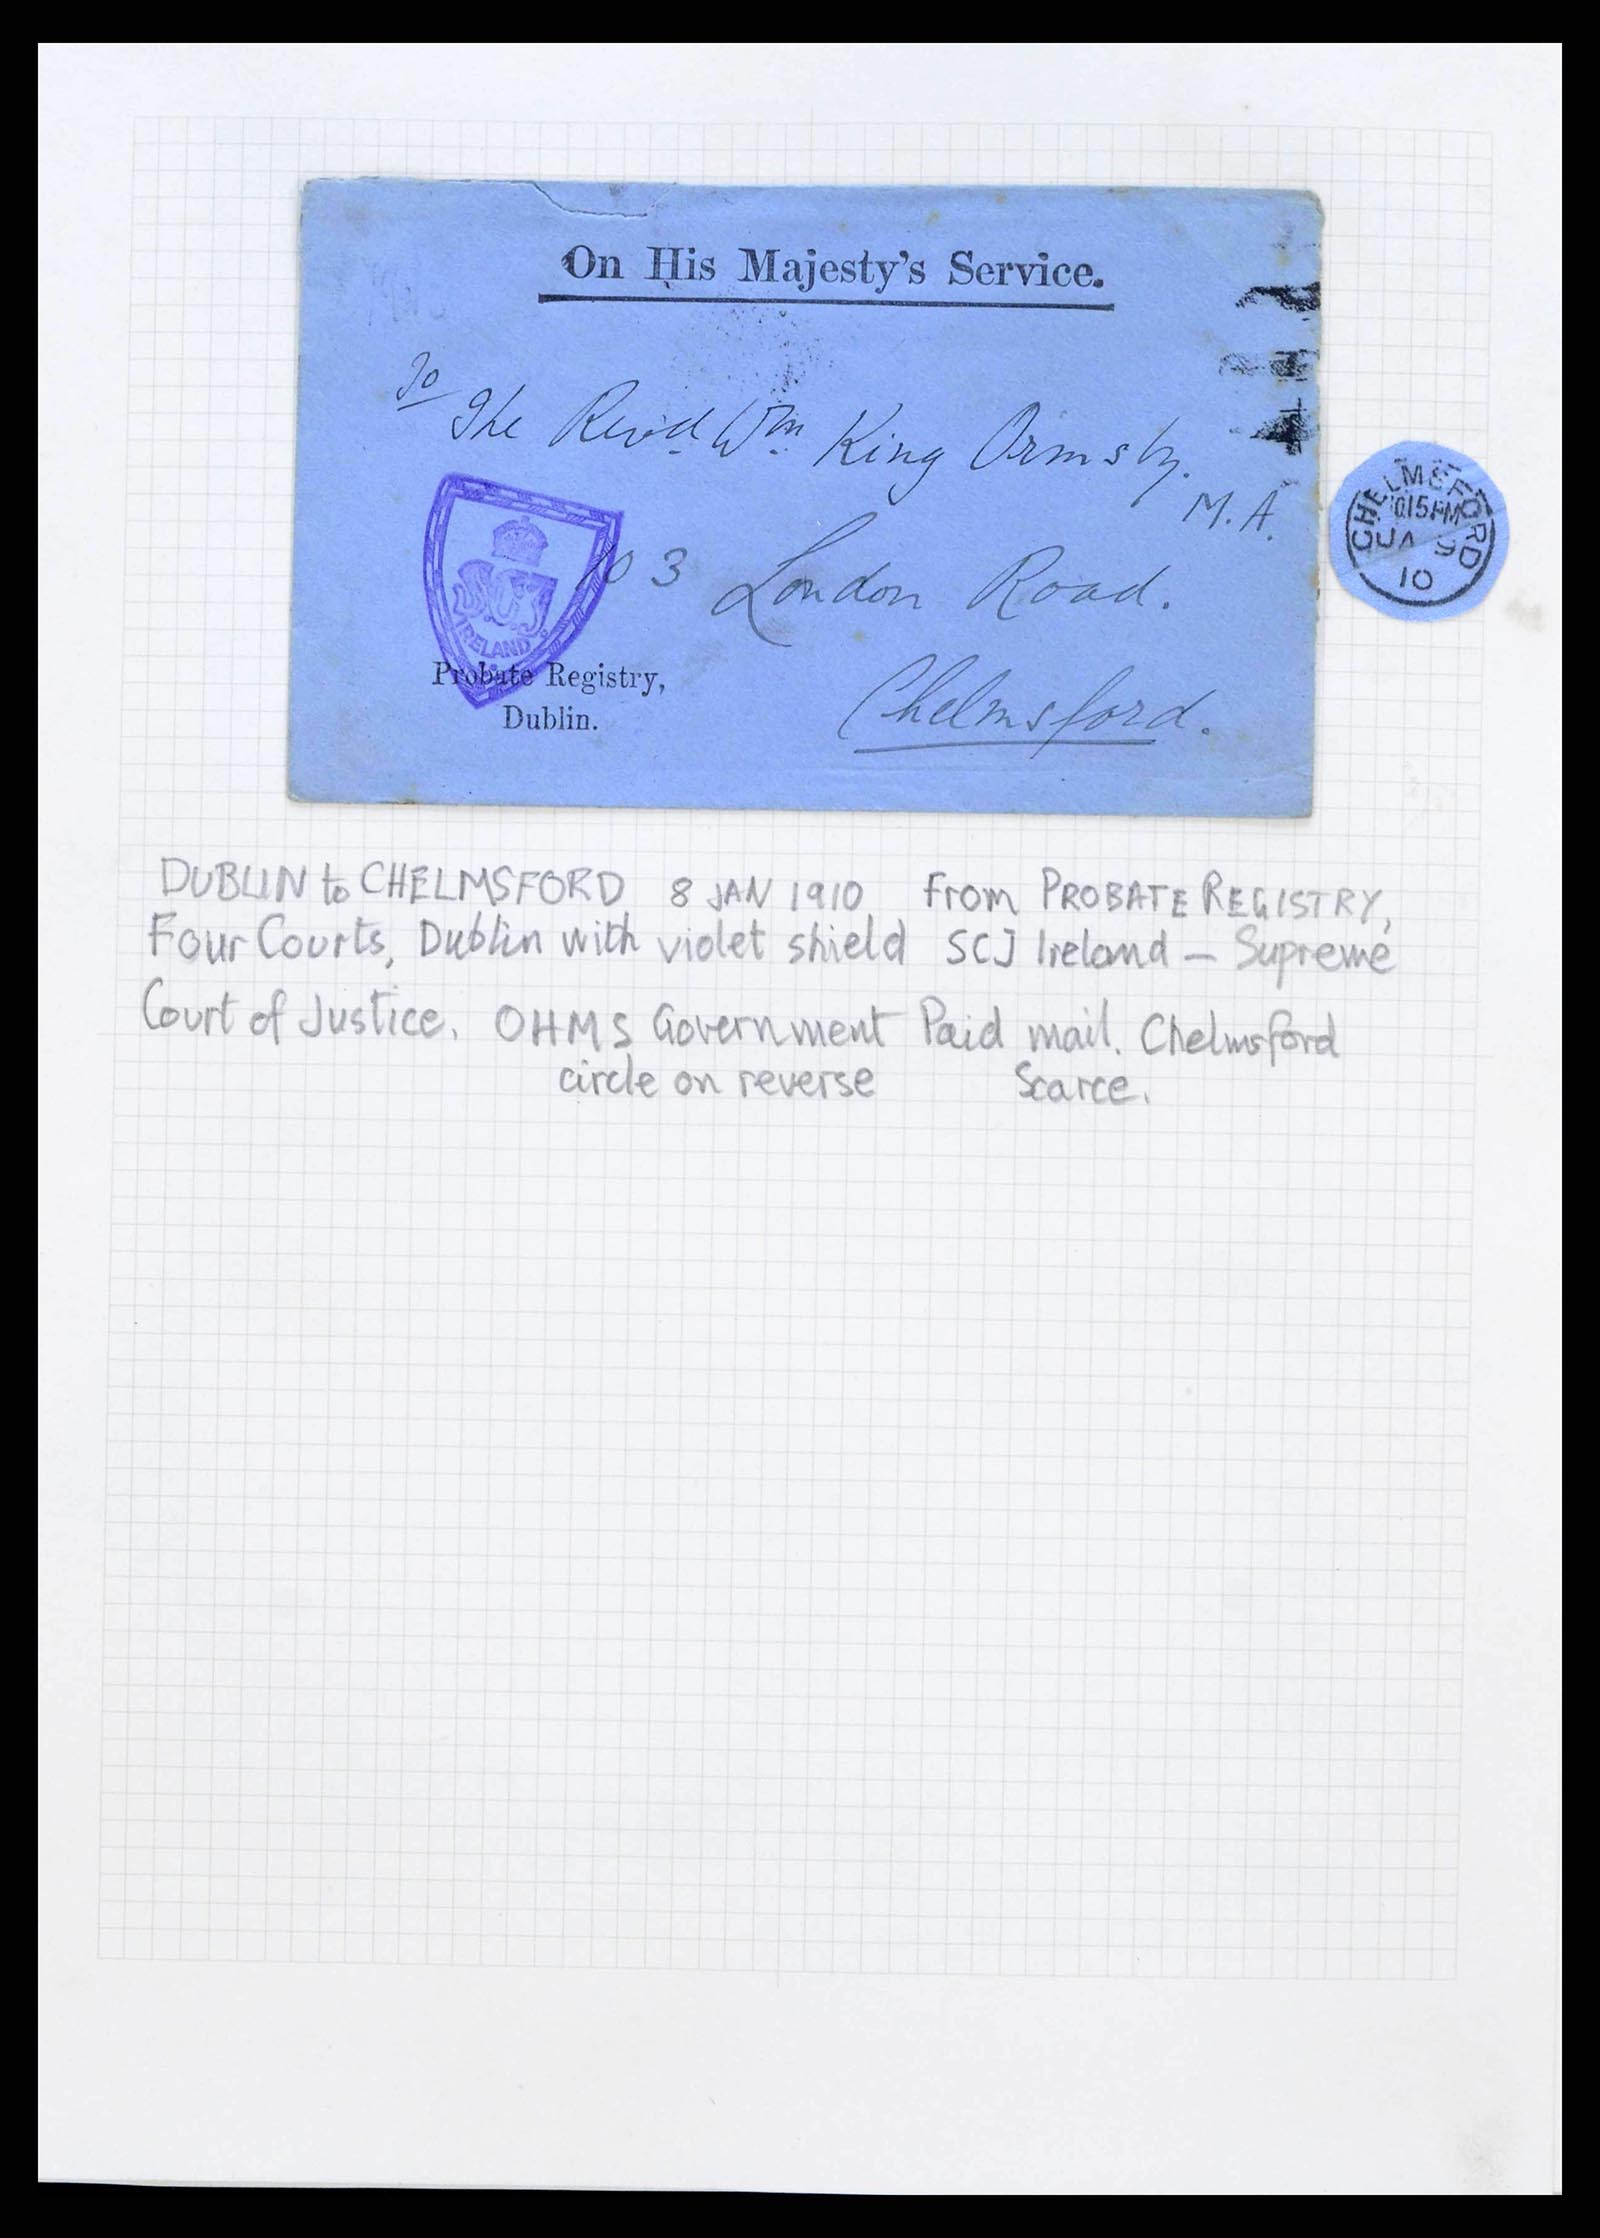 On His Majesty's Service.
To
The Revd Wm King Ormsby.
M.A.
103 London Road.
Chelmsford.
IRELAND
Probate Registry,
Dublin.
CHELMSFORD
1015PM
JA 9
10
DUBLIN to CHELMSFORD 8 JAN 1910 From PROBATE REGISTRY,
Four Courts, Dublin with violet shield SCJ Ireland – Supreme
Court of Justice. OHMS Government Paid mail. Chelmsford
circle on reverse Scarce.